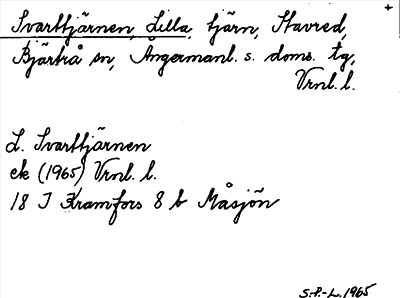 Svarttjärnen, Lilla, tjärn, Stavred,
Bjärtrå sn, Ångermanl. s. doms. tg,
Vrnl. l.
L. Svarttjärnen
ek (1965) Vrnl. l.
18 I Kramfors 8 b Måsjön
S.P.-L. 1965